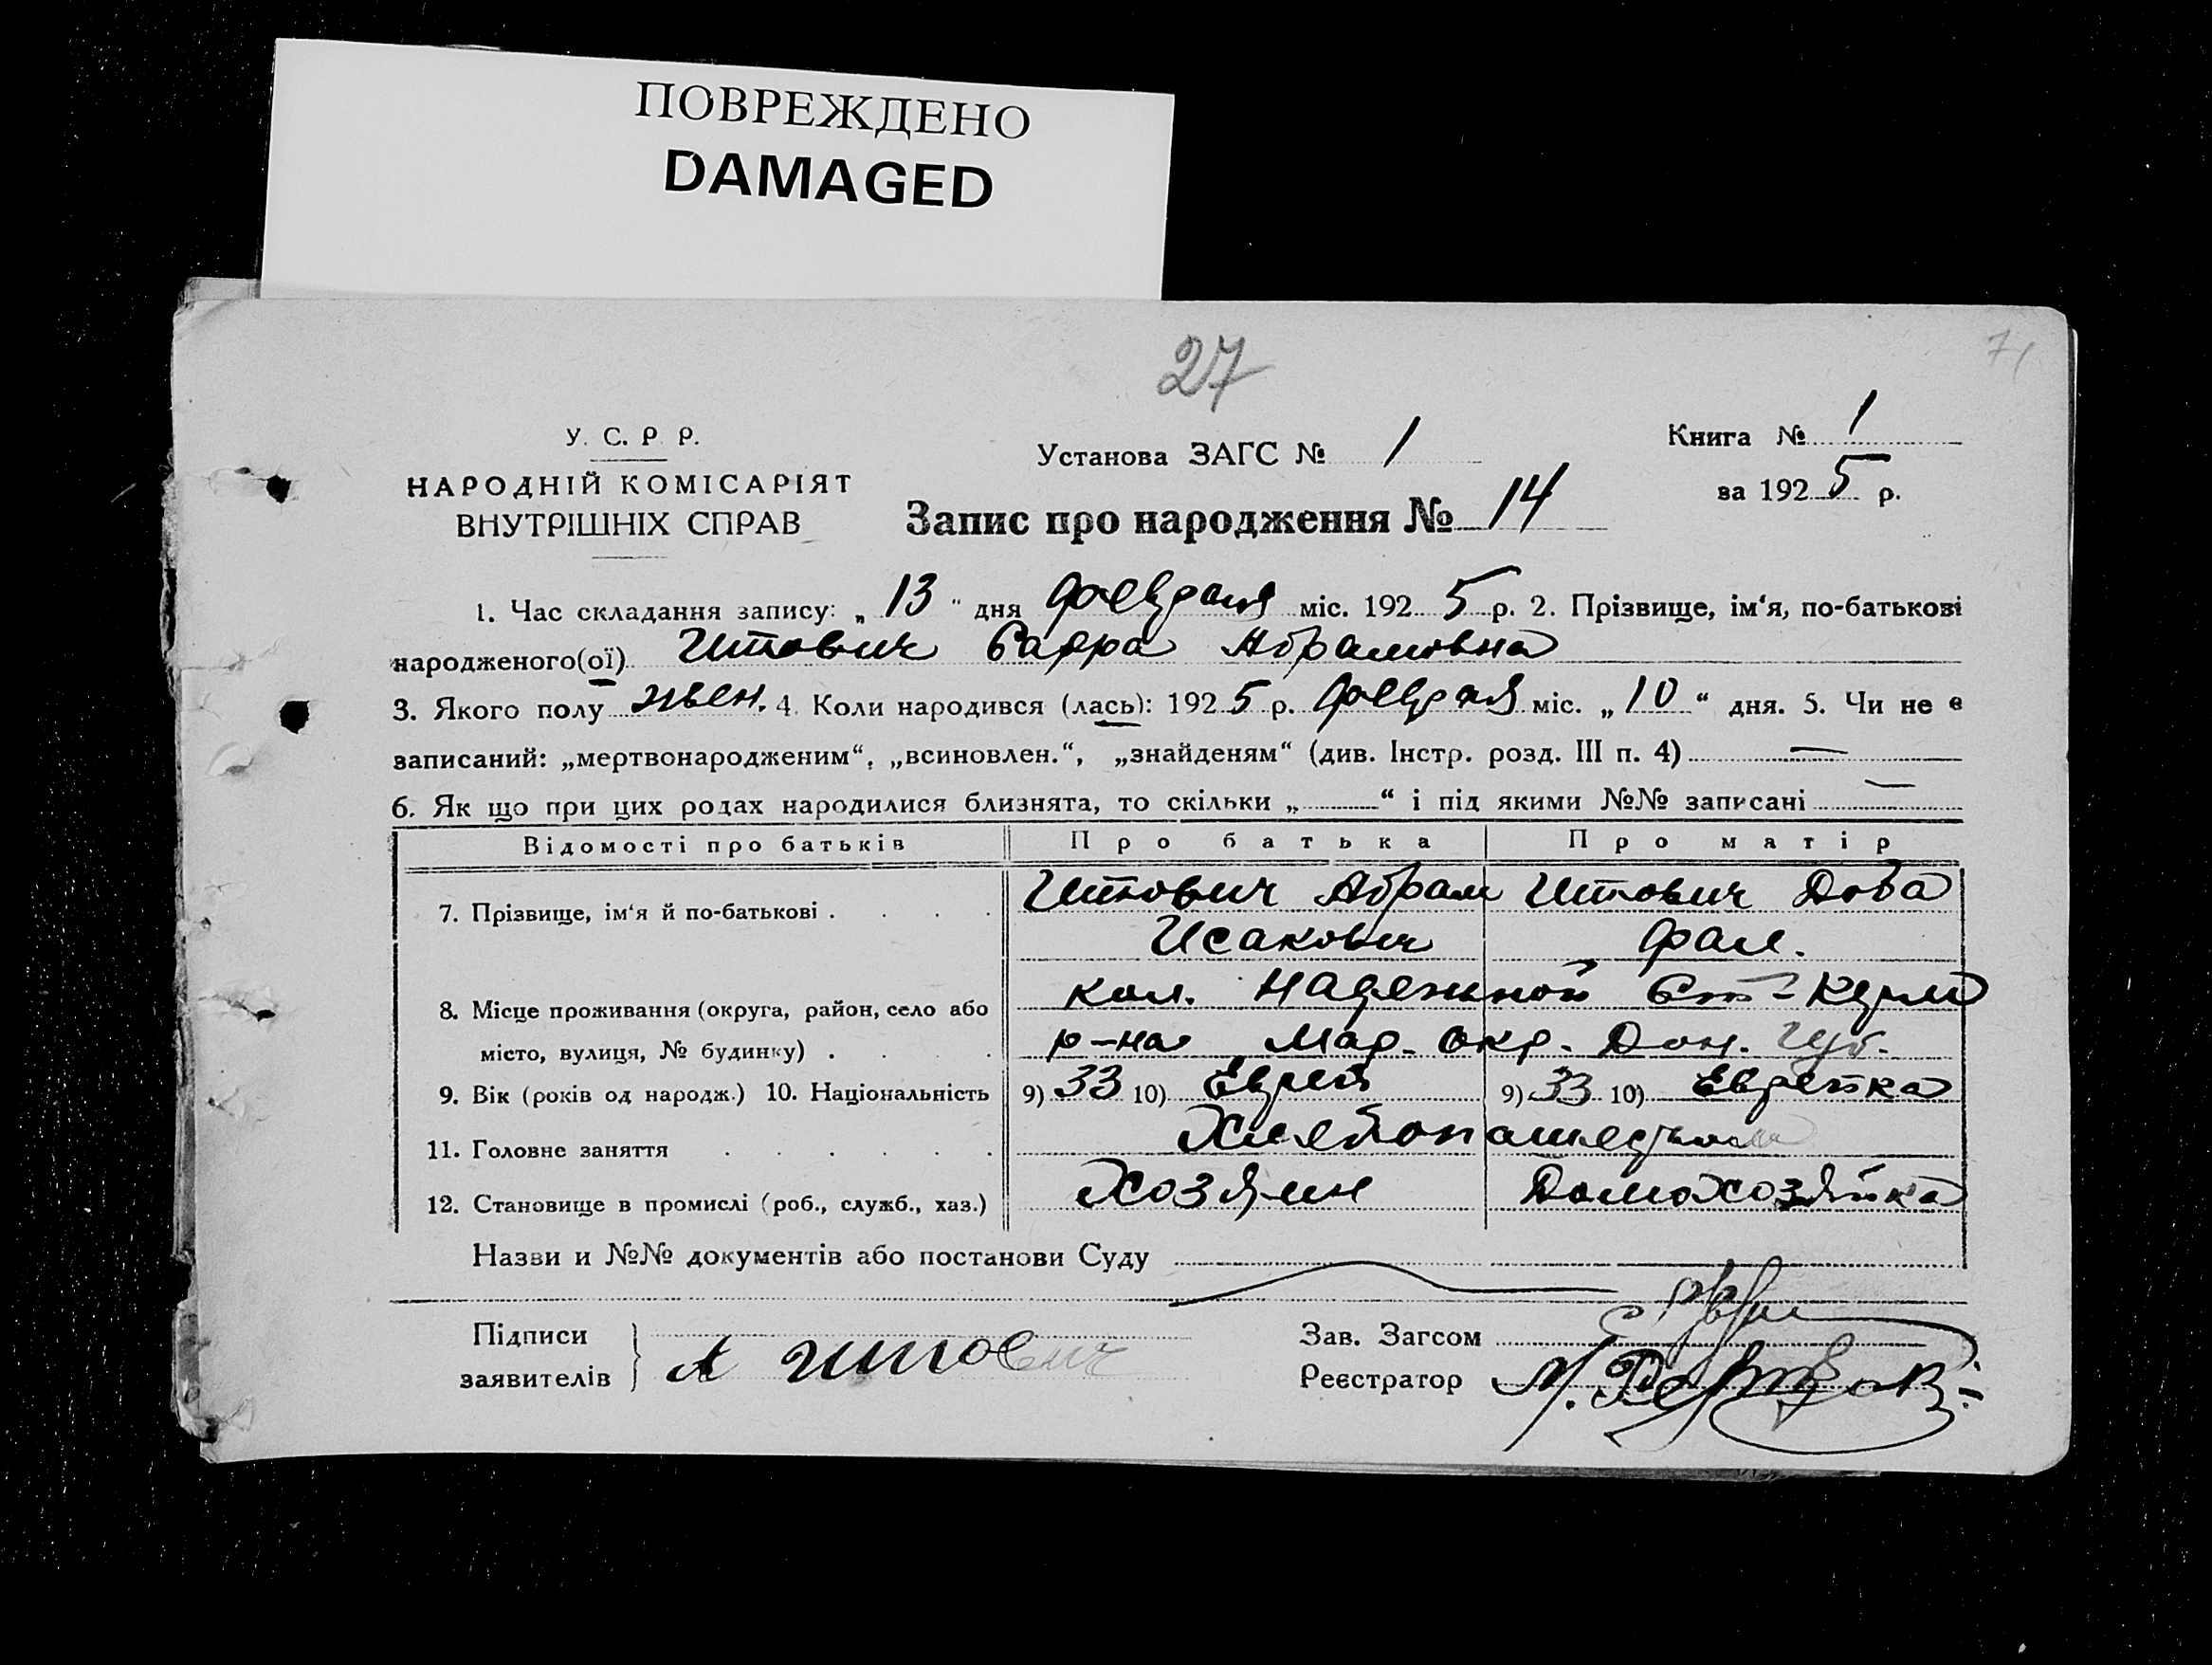 ПОВРЕЖДЕНО
DAMAGED
27
71
У. С. Р. Р.
НАРОДНІЙ КОМІСАРІЯТ
ВНУТРІШНІХ СПРАВ
Установа ЗАГС № 1
Запис про народження № 14
Книга № 1
за 1925 р.
1. Час складання запису: „13" дня февраля міс. 1925 р. 2. Прізвище, ім'я, по-батькові
народженого(ої) Итович Сарра Абрамовна
3. Якого полу жен. 4. Коли народився (лась): 1925 р. февраля міс. „10" дня. 5. Чи не є
записаний: „мертвонародженим", „всиновлен.", „знайденям" (див. Інстр. розд. III п. 4) —
6. Як що при цих родах народилися близнята, то скільки „ " і під якими №№ записані —
Відомості про батьків Про батька Про матір
7. Прізвище, ім'я й по-батькові . . . . Итович Абрам Итович Доба
Исакович
8. Місце проживання (округа, район, село або кол. Надежной Ст-Керм
місто, вулиця, № будинку) . . . р-на Мар. окр. Дон. Губ.
9. Вік (років од народж.) 10. Національність 9) 33 10) Еврей 9) 33 10) Еврейка
11. Головне заняття . . . . . . Хлебопашество
12. Становище в промислі (роб., служб., хаз.) Хозяин Домохозяйка
Назви и №№ документів або постанови Суду
Підписи
заявителів } А Итович
Зав. Загсом
Реєстратор М.